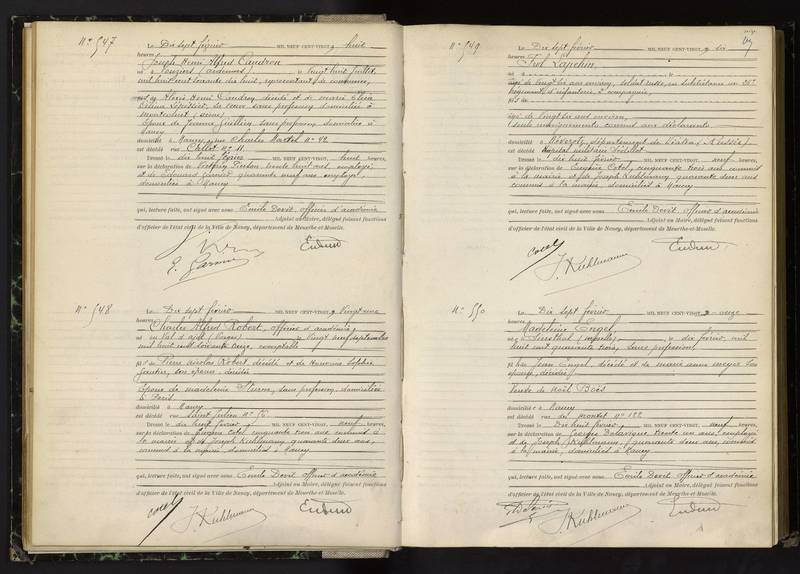 N° 547
Le Dix sept février MIL NEUF CENT-VINGT, à huit
heures
Joseph Henri Alfred Caudron
né à Vouziers (Ardennes) le vingt huit juillet
mil huit cent soixante dix huit, représentant de commerce,
fils de Henri Caudron, décédé et de Marie
sa veuve, sans profession domiciliée à
(Seine)
Epoux de Jeanne Guilliez, sans profession, domiciliée à
Nancy
domicilié à Nancy, rue Charles Martel n° 42
est décédé rue n° 11.
Dressé le dix huit février huit heures,
sur la déclaration de trente huit ans, employé
et de Edouard quarante neuf ans, employé,
domiciliés à Nancy
qui, lecture faite, ont signé avec nous Emile Dovit, officier d'académie
Adjoint au Maire, délégué faisant fonctions
d'officier de l'état civil de la Ville de Nancy, département de Meurthe-et-Moselle.
N° 548
Le Dix sept février MIL NEUF CENT-VINGT, à vingt une
heures
Charles Alfred Robert, officier d'académie,
né au Val d'Ajol (Vosges) le vingt neuf septembre
mil huit cent soixante onze, comptable
fils de Pierre Nicolas Robert, décédé et de Sophie
son épouse, décédée
Epoux de Madeleine Sturm, sans profession, domiciliée
à Paris
domicilié à Nancy
est décédé rue Saint Julien n°
Dressé le dix huit février, neuf heures,
sur la déclaration de Eugène Cotel, cinquante trois ans commis à
la mairie et de Joseph Kuhlmann, quarante deux ans,
commis à la mairie, domiciliés à Nancy
qui, lecture faite, ont signé avec nous Emile Dovit officier d'académie
Adjoint au Maire, délégué faisant fonctions
d'officier de l'état civil de la Ville de Nancy, département de Meurthe-et-Moselle.
Cotel J. Kuhlmann
N° 549
Le Dix sept février MIL NEUF CENT-VINGT, à dix
heures
Frol Lapchin,
né à le
âgé de vingt six ans environ, soldat russe, en subsistance au
régiment d'infanterie compagnie,
fils de
âgé de vingt six ans environ,
seuls renseignements connus des déclarants.
domicilié à département de (Russie)
est décédé hôpital militaire Sédillot
Dressé le dix huit février, neuf heures,
sur la déclaration de Eugène Cotel, cinquante trois ans commis
à la mairie et de Joseph Kuhlmann, quarante deux ans
commis à la mairie, domiciliés à Nancy
qui, lecture faite, ont signé avec nous Emile Dovit, officier d'académie
Adjoint au Maire, délégué faisant fonctions
d'officier de l'état civil de la Ville de Nancy, département de Meurthe-et-Moselle.
Cotel J. Kuhlmann
N° 550
Le Dix sept février MIL NEUF CENT-VINGT, à onze
heures
Madeleine Engel,
née à (Moselle) le dix février, mil
huit cent quarante trois, sans profession,
fille de Jean Engel, décédé et de Marie Anne Meyer son
épouse, décédée
Veuve de Noël Boës
domiciliée à Nancy
est décédée rue du Montet n° 122
Dressé le Dix huit février, neuf heures,
sur la déclaration de Georges trente un ans, employé
et de Joseph Kuhlmann, quarante deux ans, commis
à la mairie, domiciliés à Nancy
qui, lecture faite, ont signé avec nous Emile Dovit officier d'académie
Adjoint au Maire, délégué faisant fonctions
d'officier de l'état civil de la Ville de Nancy, département de Meurthe-et-Moselle.
J. Kuhlmann